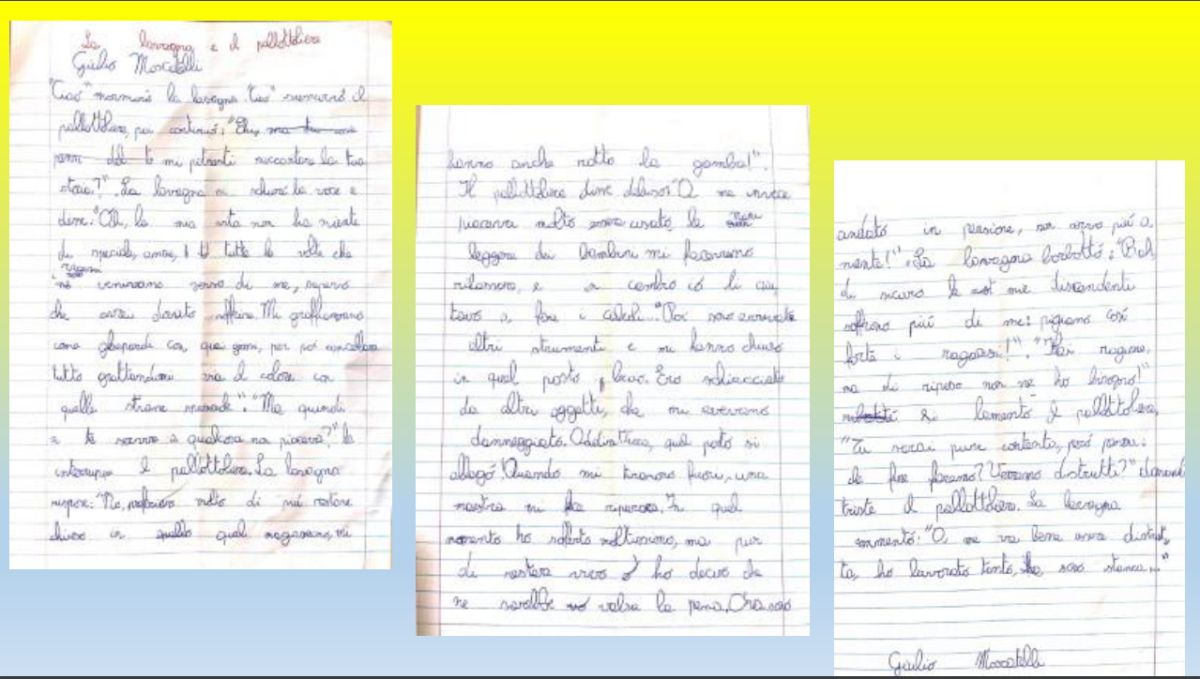 La lavagna e il pallottoliere
Giulio Moscatelli
"Ciao" mormorò la lavagna. "Ciao" sussurrò il
pallottoliere, poi continuò: "Ehi,
te mi potresti raccontare la tua
storia?". La lavagna si schiarì la voce e
disse: "Oh, la mia vita non ha niente
di speciale, anzi, tutte le volte che
venivano verso di me, sapevo
che avrei dovuto soffrire. Mi graffiavano
come ghepardi con quei gessi, per poi cancellare
tutto grattandomi via il colore con
quelle strane". "Ma quindi
a te servire a qualcosa non piaceva?" lo
interruppe il pallottoliere. La lavagna
rispose: "No, preferivo molto di più restare
chiuso in quello quel magazzino, mi
hanno anche rotto la gamba!".
Il pallottoliere disse deluso: "A me invece
piaceva molto essere usato, le
leggere dei bambini mi facevano
rilassare, e in cambio io li aiu
tavo a fare i calcoli. "Poi sono arrivati
altri strumenti e mi hanno chiuso
in quel posto, buio. Ero schiacciato
da altri oggetti, che mi avevano
danneggiato. Addirittura, quel posto si
allagò! Quando mi tirarono fuori, una
maestra mi riparava. In quel
momento ho sofferto moltissimo, ma pur
di restare vivo ho deciso che
ne sarebbe valsa la pena. Ora sono
andato in pensione, non servo più a
niente!". La lavagna borbottò: "Beh,
di sicuro le mie discendenti
soffrono più di me: pigiano così
forte i ragazzi!". "Hai ragione,
ma di riposo non ne ho bisogno!"
si lamentò il pallottoliere,
"Tu sarai pure contento, però pensa:
che fine faremo? Verremo distrutti?" domandò
triste il pallottoliere. La lavagna
commentò: "A me va bene essere distrut
ta, ho lavorato tanto, sono stanca..."
Giulio Moscatelli